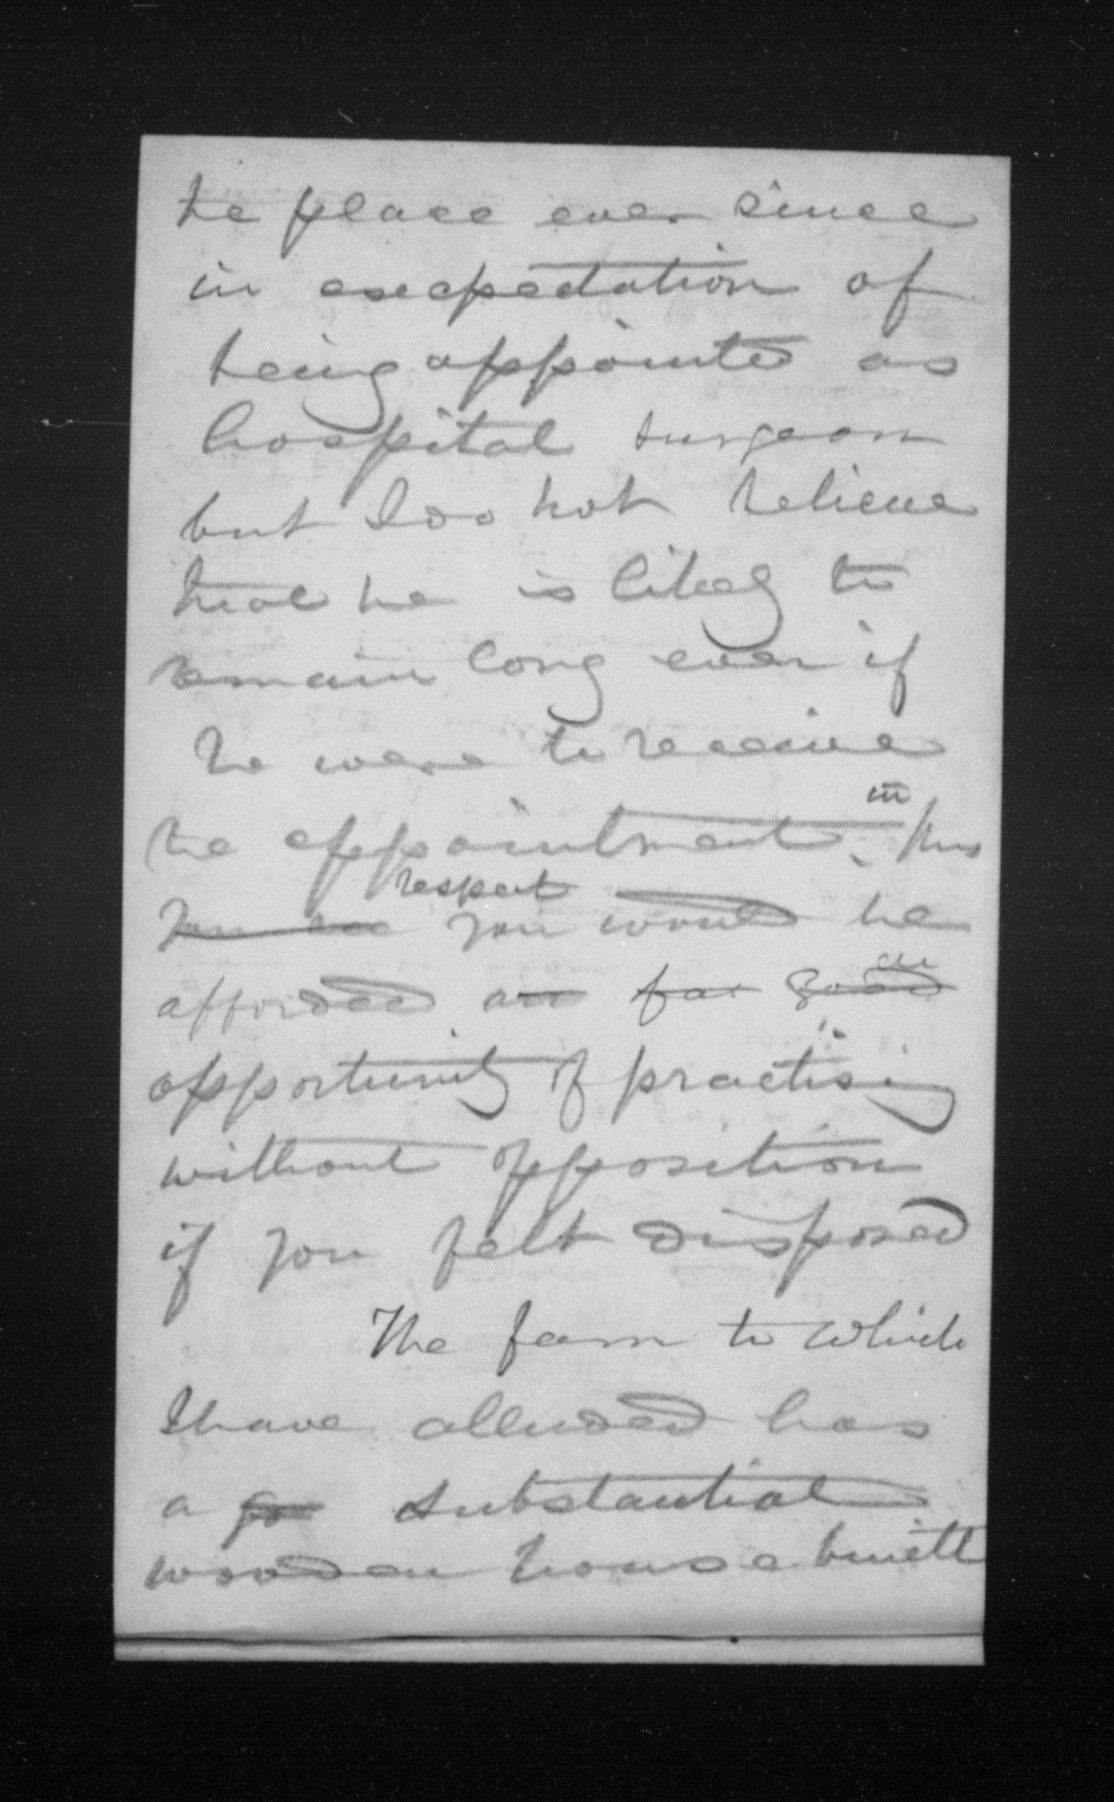 the place ever since
in exepectation of
being appointed as
hospital surgeon
but I do not believe
that he is likely to
remain long even if
he were to receive
the appointment. in this
respect you would be
afforded an far good an
opportunity of practising
without opposition
if you felt disposed
The farm to which
I have alluded has
a go substantial
wooden house built